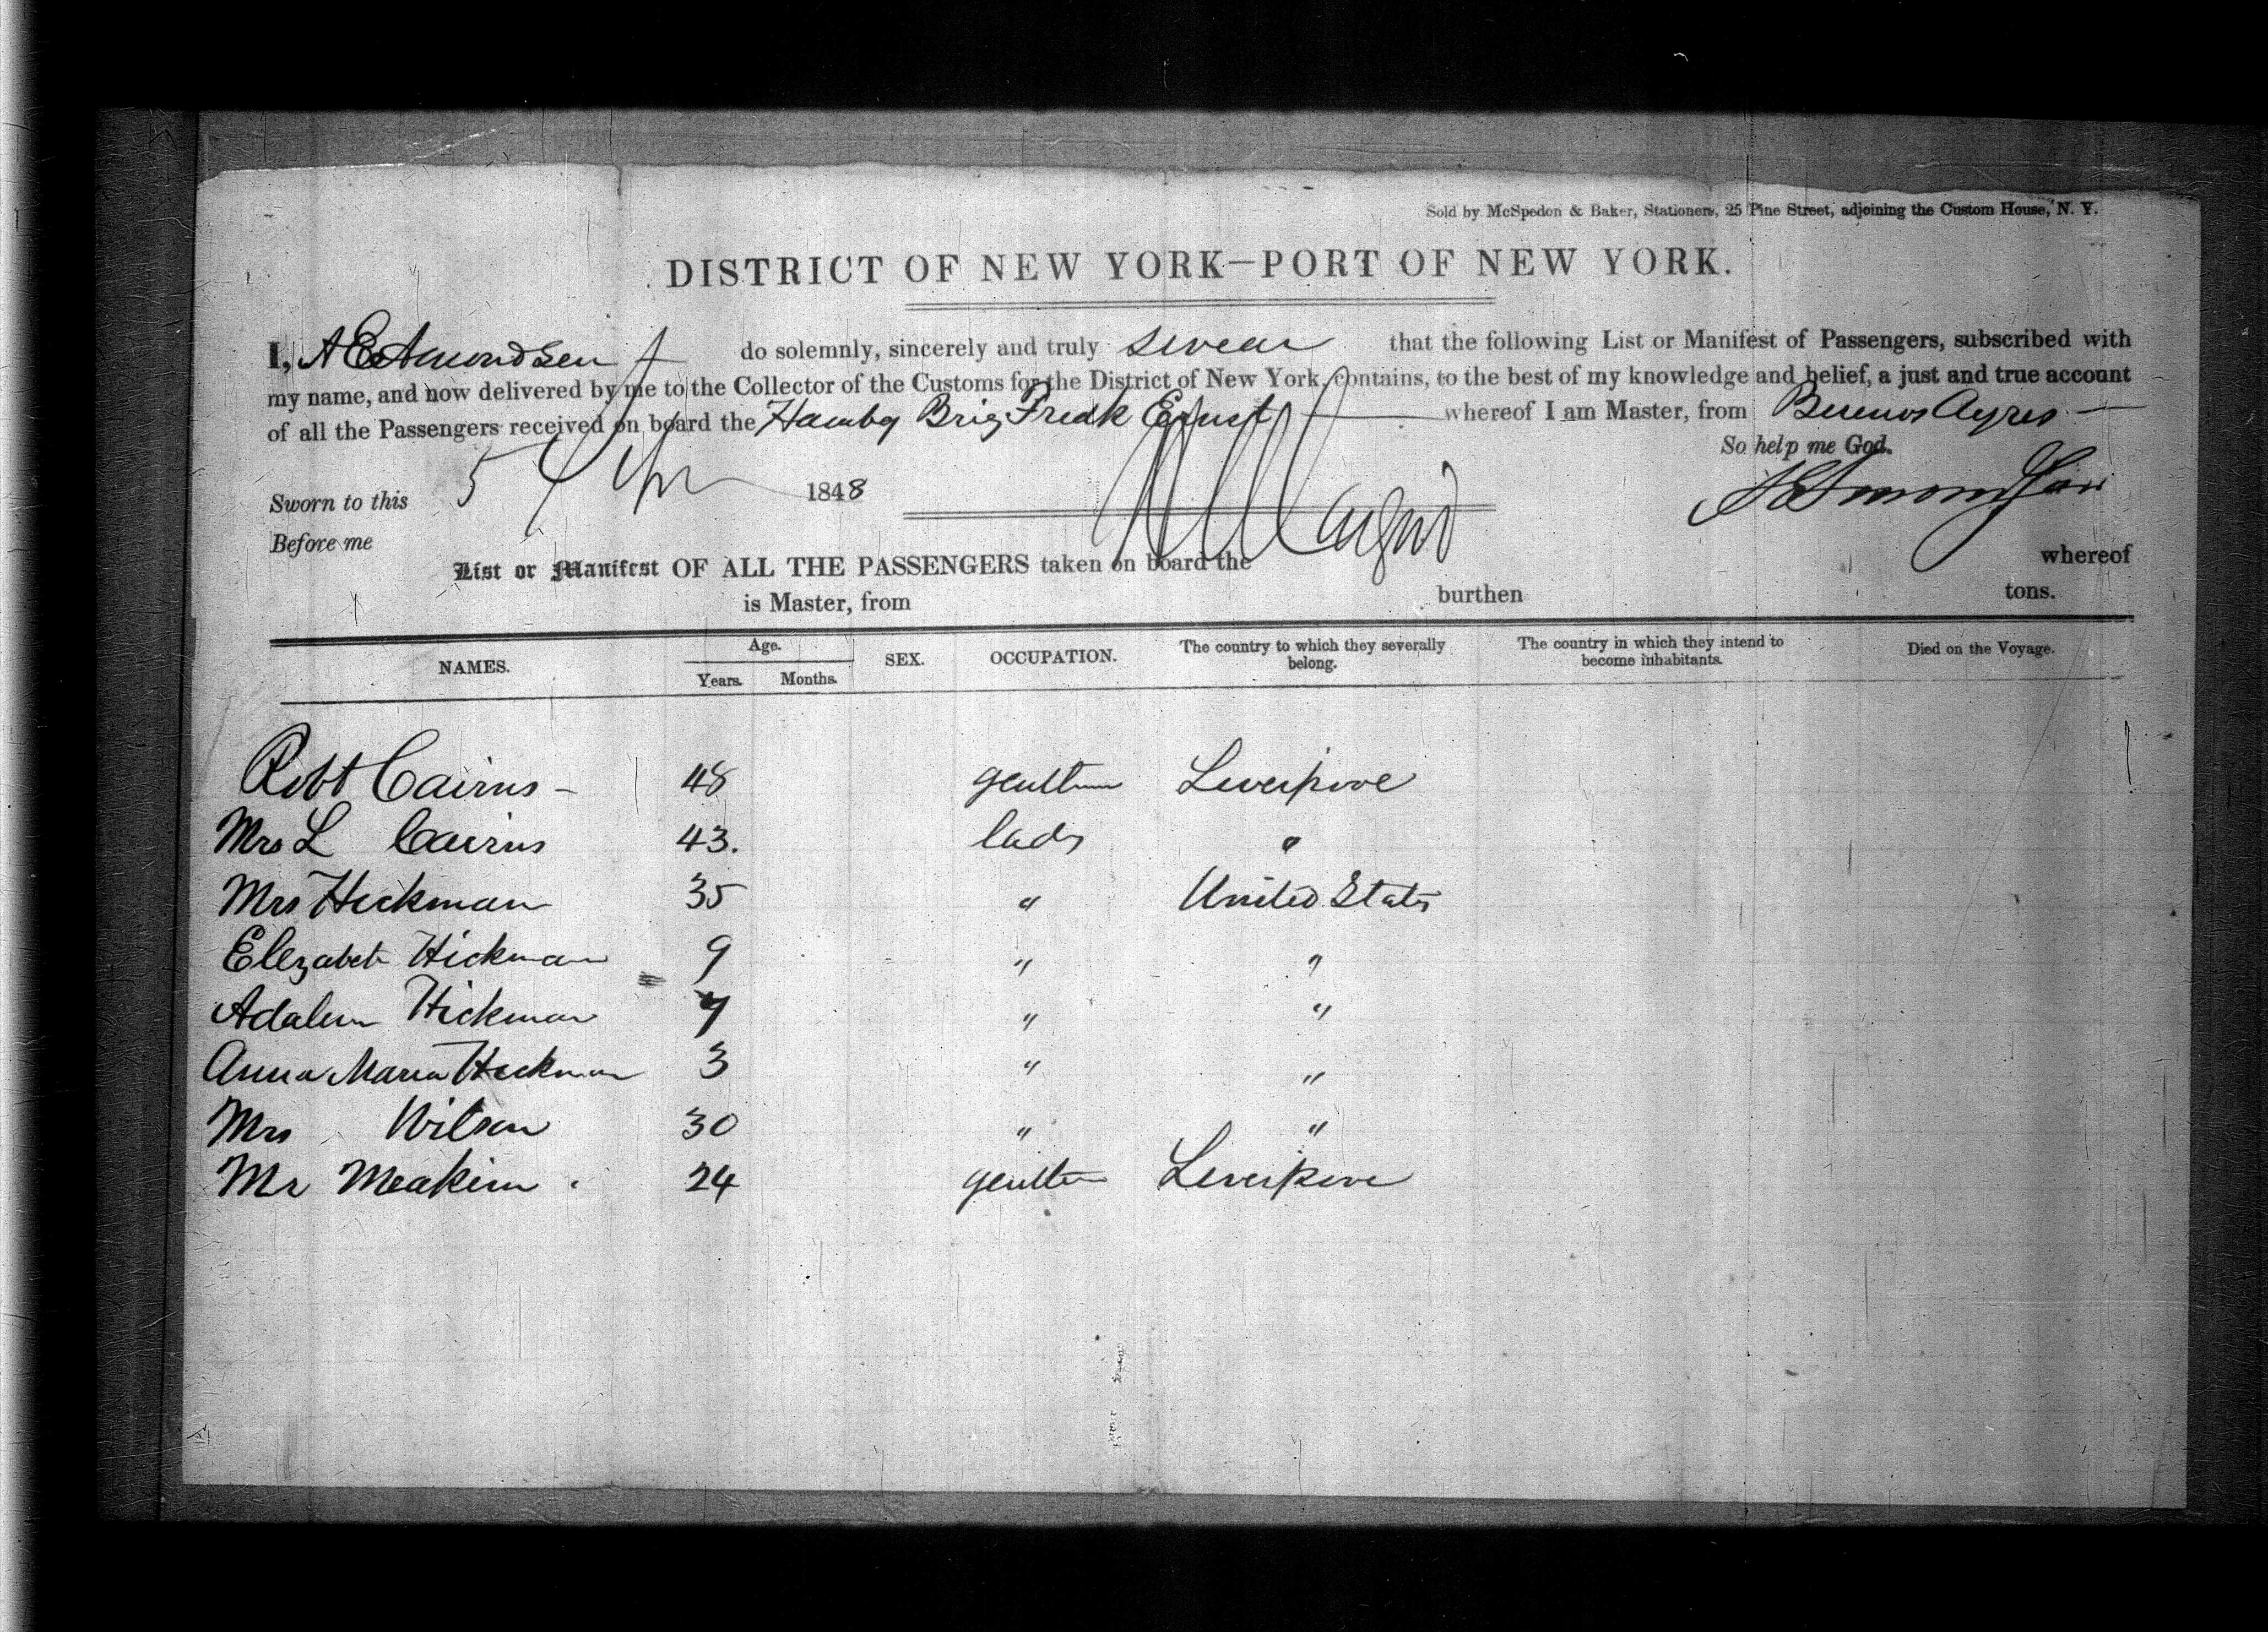 Sold by McSpedon & Baker, Stationers, 25 Pine Street, adjoining the Custom House, N. Y.
DISTRICT OF NEW YORK—PORT OF NEW YORK.
I, A Edmondsen do solemnly, sincerely and truly swear that the following List or Manifest of Passengers, subscribed with
my name, and now delivered by me to the Collector of the Customs for the District of New York, contains, to the best of my knowledge and belief, a just and true account
of all the Passengers received on board the Hambg Brig Fredk Ernst whereof I am Master, from Buenos Ayres
So help me God.
Sworn to this 5 1848
Before me
List or Manifest OF ALL THE PASSENGERS taken on board the whereof
is Master, from burthen tons.
NAMES. Age. Years. Months. SEX. OCCUPATION. The country to which they severally belong. The country in which they intend to become inhabitants. Died on the Voyage.
Robt Cairns - 48 gentlm Liverpool
Mrs L Cairns 43. lady "
Mrs Hickman 35 " United States
Elezabeth Hickman 9 " "
Adalin Hickman 7 " "
Anna Maria Hickman 3 " "
Mrs Wilson 30 " "
Mr Meakin 24 gentlm Liverpool